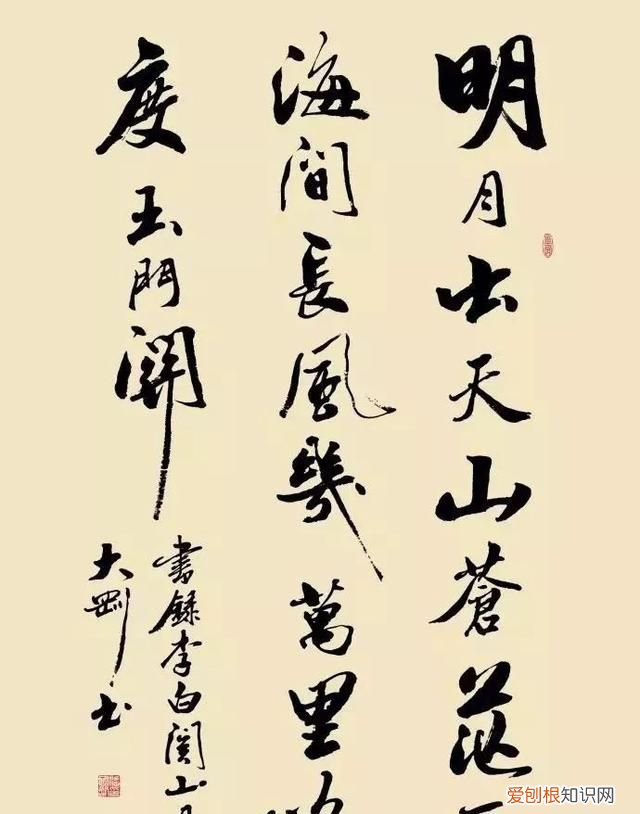 明月出天山蒼茫
海間長風幾萬里
度玉門關
書録李白関山
大剛书
爱刨根知识网